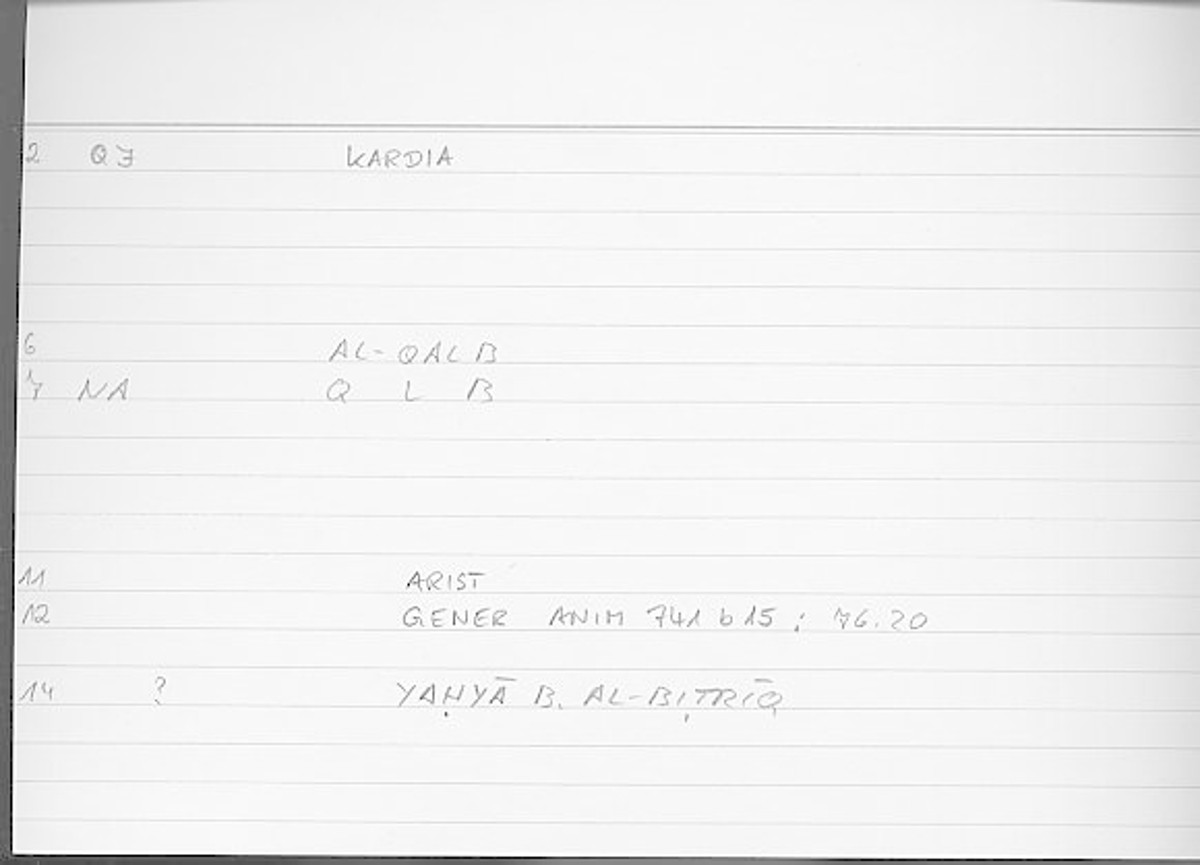 2 QJ KARDIA
6 AL-QALB
7 NA Q L B
11 ARIST
12 GENER ANIM 741 b 15 ; 76.20
14 ? YAḤYĀ B. AL-BIṬRĪQ